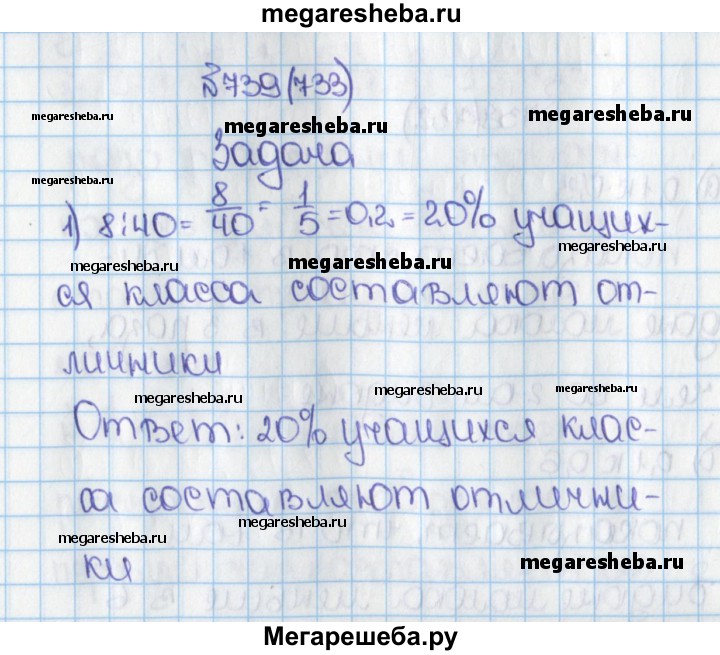 megaresheba.ru
№739(733)
megaresheba.ru megaresheba.ru megaresheba.ru
Задача
megaresheba.ru
1) 8:40= 8/40 = 1/5 =0,2 =20% учащих-
megaresheba.ru megaresheba.ru megaresheba.ru
ся класса составляют от-
личники
megaresheba.ru megaresheba.ru megaresheba.ru
Ответ: 20% учащихся клас-
са составляют отлични-
megaresheba.ru megaresheba.ru megaresheba.ru
ки
Мегарешеба.ру